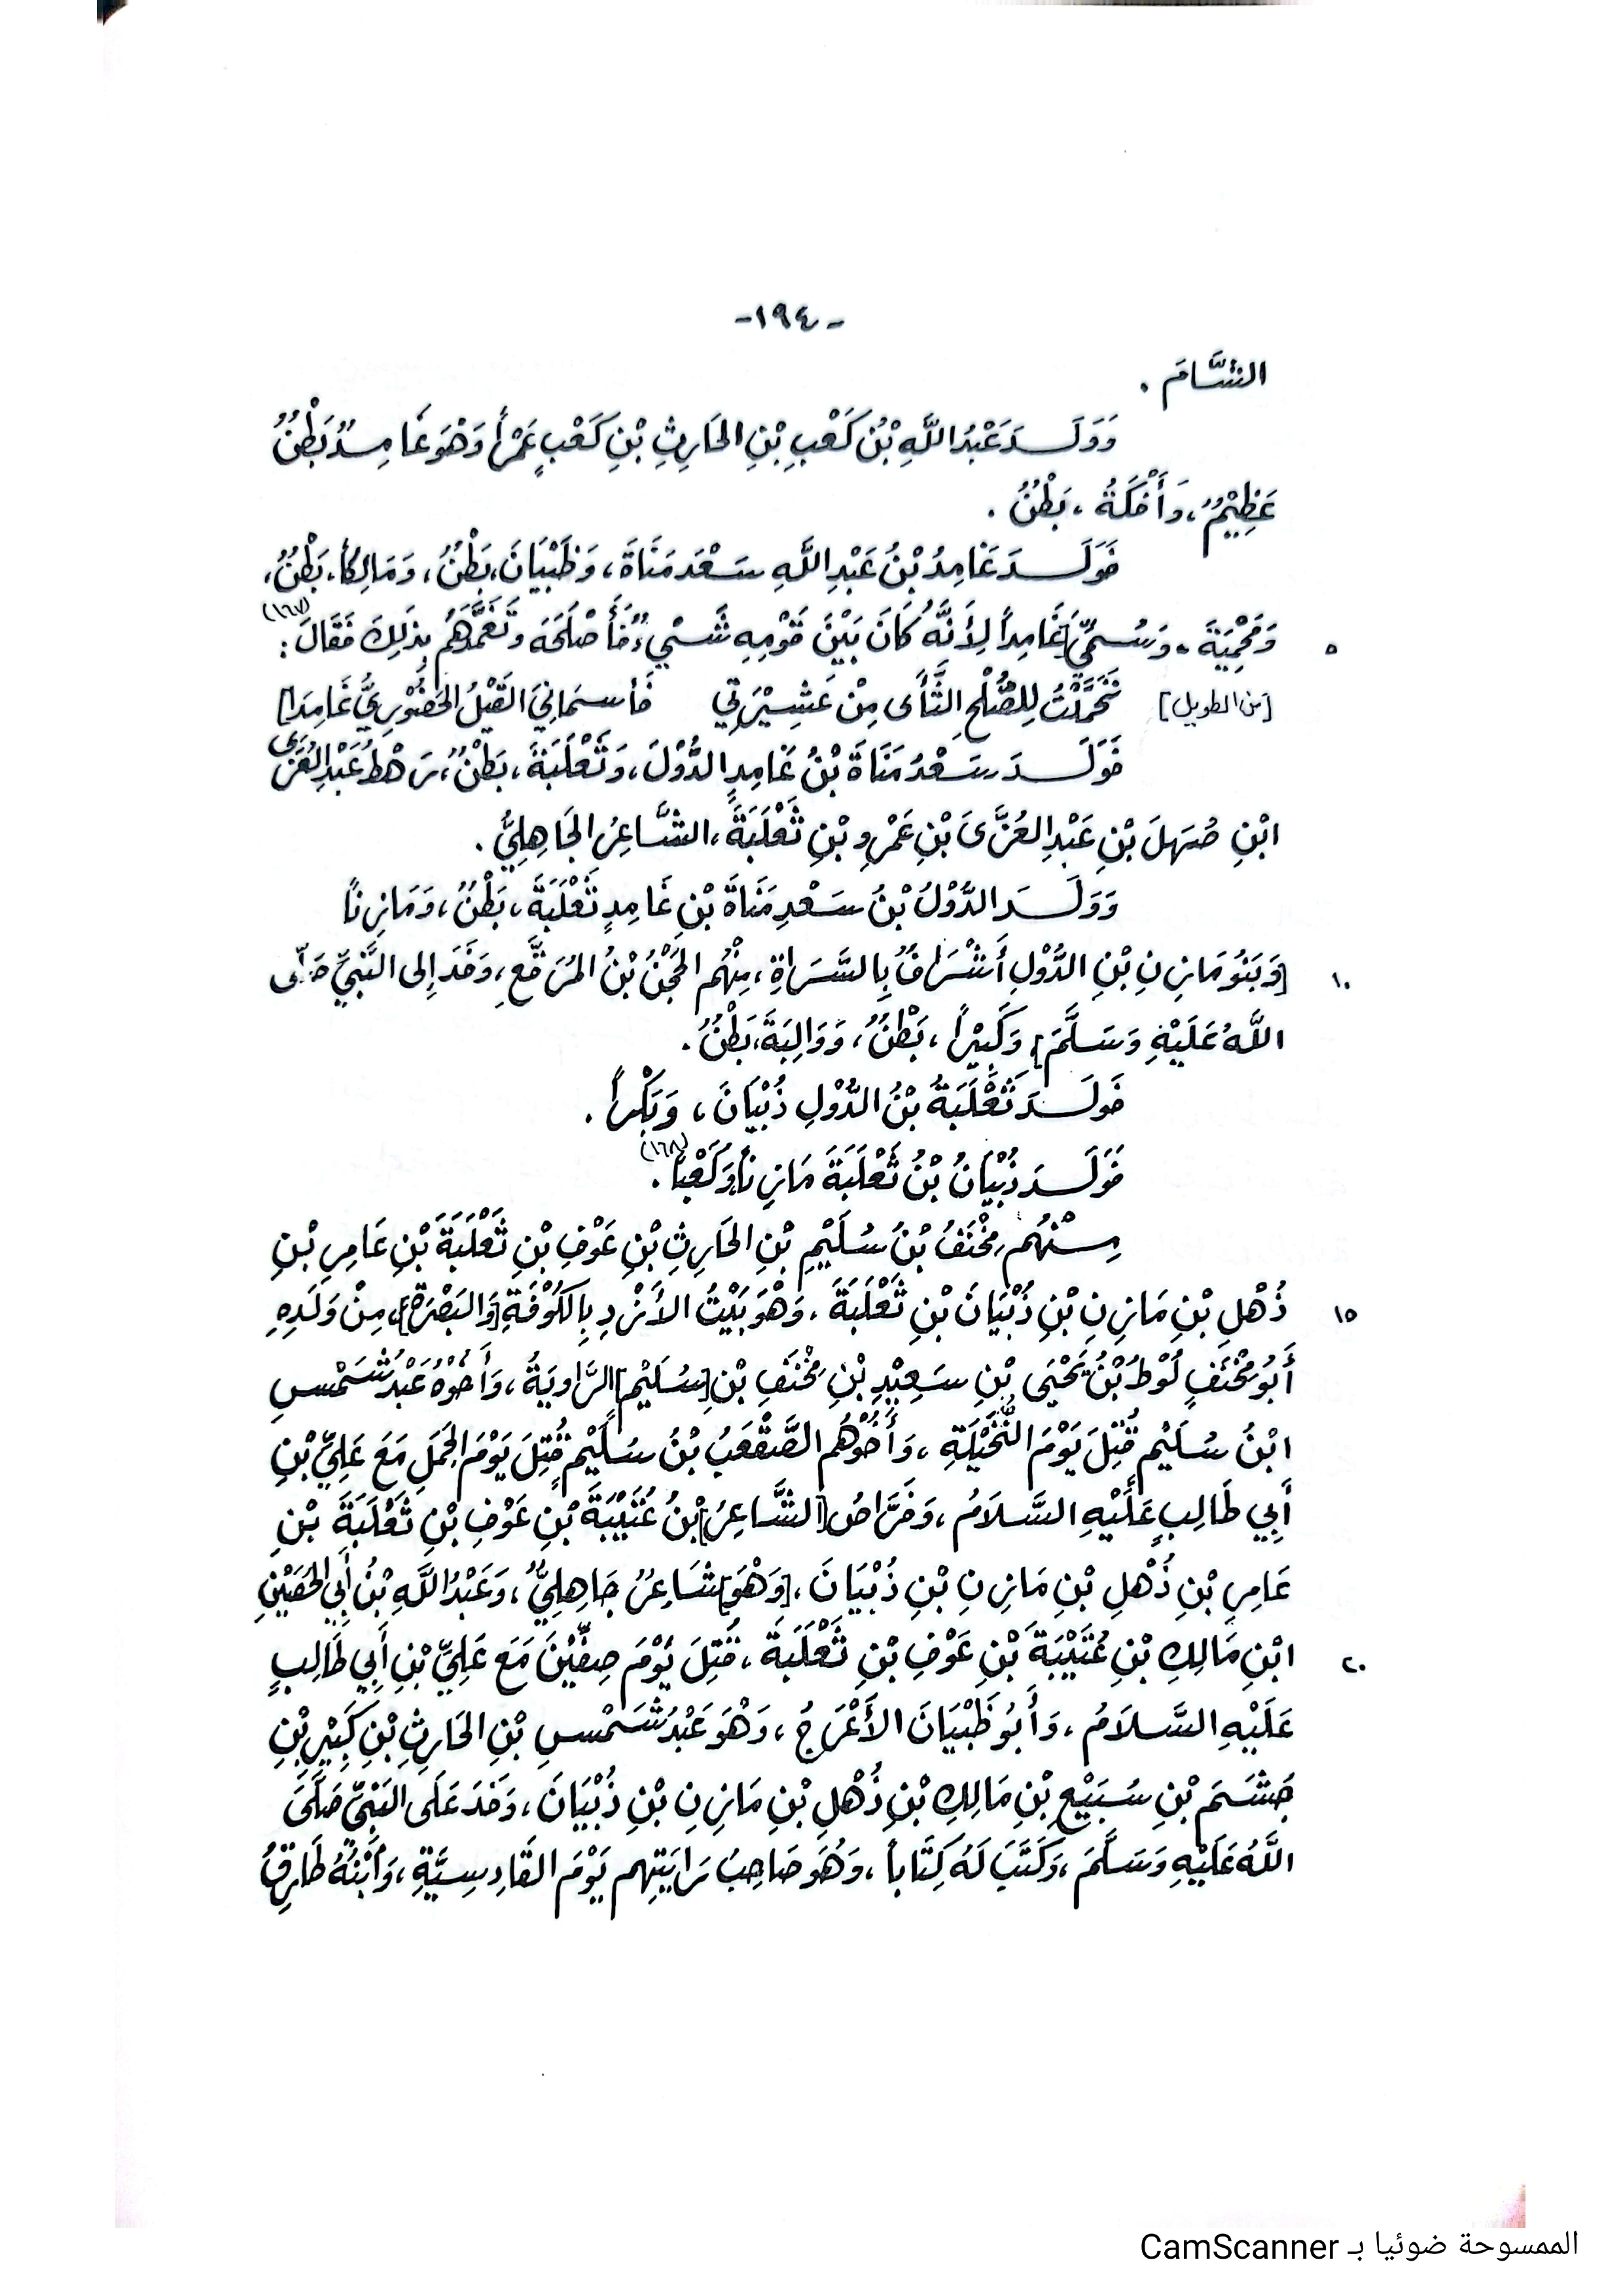 -١٩٤-
الشَّامَ .
وَوَلَـدَ عَبْدُ اللَّهِ بْنُ كَعْبِ بْنِ الحَارِثِ بْنِ كَعْبٍ عَمْرَاً وَهْوَ غَامِـدٌ بَطْنٌ
عَظِيْمٌ، وَأَفْكَةُ ، بَطْنٌ .
فَوَلَـدَ غَامِدُ بْنُ عَبْدِ اللَّهِ سَعْدَ مَنَاةَ ، وَظَبْيَانَ، بَطْنٌ ، وَمَالِكَاً، بَطْنٌ،
٥ وَمَحْمِيَةَ . وَسُـمِّيَ [غَامِداً لِأَنَّهُ كَانَ بَيْنَ قَوْمِهِ شَـيْءٌ فَأَصْلَحَهُ وتَغَمَّدَهُم بِذَلِكَ فَقَالَ (١٦٧) :
[من الطويل] تَحَمَّلْتُ لِلصُّلْحِ الثَّأَى مِنْ عَشِيْرَتِي فَأسـمَانِيَ القَيْلُ الحَضُوْرِيُّ غَامِدَا]
فَوَلَـدَ سَـعْدُ مَنَاةَ بْنُ غَامِدٍ الدُّوْلَ، وَثَعْلَبَةَ ، بَطْنٌ ، رَهْطُ عَبْدِ العُزَّى
ابْنِ صُهَلَ بْنِ عَبْدِ العُزَّىَ بْنِ عَمْرِو بْنِ ثَعْلَبَةَ ، الشَّاعِرُ الجَاهِلِيُّ .
وَوَلَـدَ الدُّوْلُ بْنُ سَعْدِ مَنَاةَ بْنِ غَامِدٍ ثَعْلَبَةَ ، بَطْنٌ ، وَمَازِنَاً
١٠ [وَبَنُو مَازِنِ بْنِ الدُّوْلِ أَشْرَافٌ بِالسَّرَاةِ ، مِنْهُم الحَجْنُ بْنُ المُرَقَّعِ ، وَفَدَ إِلى النَّبِيِّ صَلَّى
اللَّهُ عَلَيْهِ وَسَلَّمَ]، وَكَبِيْرَاً ، بَطْنٌ ، وَوَالِبَةَ، بَطْنٌ .
فَوَلَـدَ ثَعْلَبَةُ بْنُ الدُّوْلِ ذُبْيَانَ ، وَبَكْرَاً .
فَوَلَـدَ ذُبْيَانُ بْنُ ثَعْلَبَةَ مَازِنَاً وَكَعْبَاً (١٦٨) .
مِـنْهُم مِخْنَفُ بْنُ سُلَيْمِ بْنِ الحَارِثِ بْنِ عَوْفِ بْنِ ثَعْلَبَةَ بْنِ عَامِرِ بْنِ
١٥ ذُهْلِ بْنِ مَازِنِ بْنِ ذُبْيَانَ بْنِ ثَعْلَبَةَ . وَهْوَ بَيْتُ الأَزْدِ بِالكُوْفَةِ [وَالبَصْرَةِ] ، مِنْ وَلَدِهِ
أَبُو مِخْنَفٍ لُوْطُ بْنُ يَحْيَى بْنِ سَعِيْدِ بْنِ مِخْنَفِ بْنِ [سُلَيْمٍ] الرَّاوِيَةُ ، وَأَخُوْهُ عَبْدُ شَمْسِ
ابْنُ سُلَيْمٍ قُتِلَ يَوْمَ النُّخَيْلَةِ ، وَأَخُوْهُم الصَّقْعَبُ بْنُ سُلَيْمٍ قُتِلَ يَوْمَ الجَمَلِ مَعَ عَلِيِّ بْنِ
أَبِي طَالِبٍ عَلَيْهِ السَّلَامُ ، وَفَرَّاصُ [الشَّاعِرُ] بْنُ عُتَيْبَةَ بْنِ عَوْفِ بْنِ ثَعْلَبَةَ بْنِ
عَامِرِ بْنِ ذُهْلِ بْنِ مَازِنِ بْنِ ذُبْيَانَ ، [وَهْوَ] شَاعِرٌ جَاهِلِيٌّ ، وَعَبْدُ اللَّهِ بْنُ أَبِي الحُصَيْنِ
٢٠ ابْنِ مَالِكِ بْنِ عُتَيْبَةَ بْنِ عَوْفِ بْنِ ثَعْلَبَةَ ، قُتِلَ يَوْمَ صِفِّيْنَ مَعَ عَلِيِّ بْنِ أَبِي طَالِبٍ
عَلَيْهِ السَّلَامُ ، وَأَبُو ظَبْيَانَ الأَعْرَجُ ، وَهْوَ عَبْدُ شَمْسِ بْنِ الحَارِثِ بْنِ كَبِيْرِ بْنِ
جُشَمَ بْنِ سُبَيْعِ بْنِ مَالِكِ بْنِ ذُهْلِ بْنِ مَازِنِ بْنِ ذُبْيَانَ ، وَفَدَ عَلَى النَّبِيِّ صَلَّىَ
اللَّهُ عَلَيْهِ وَسَلَّمَ ، وَكَتَبَ لَهُ كِتَابَاً ، وَهُوَ صَاحِبُ رَايَتِهِم يَوْمَ القَادِسِيَّةِ ، وَابْنُهُ طَارِقُ
الممسوحة ضوئيا بـ CamScanner